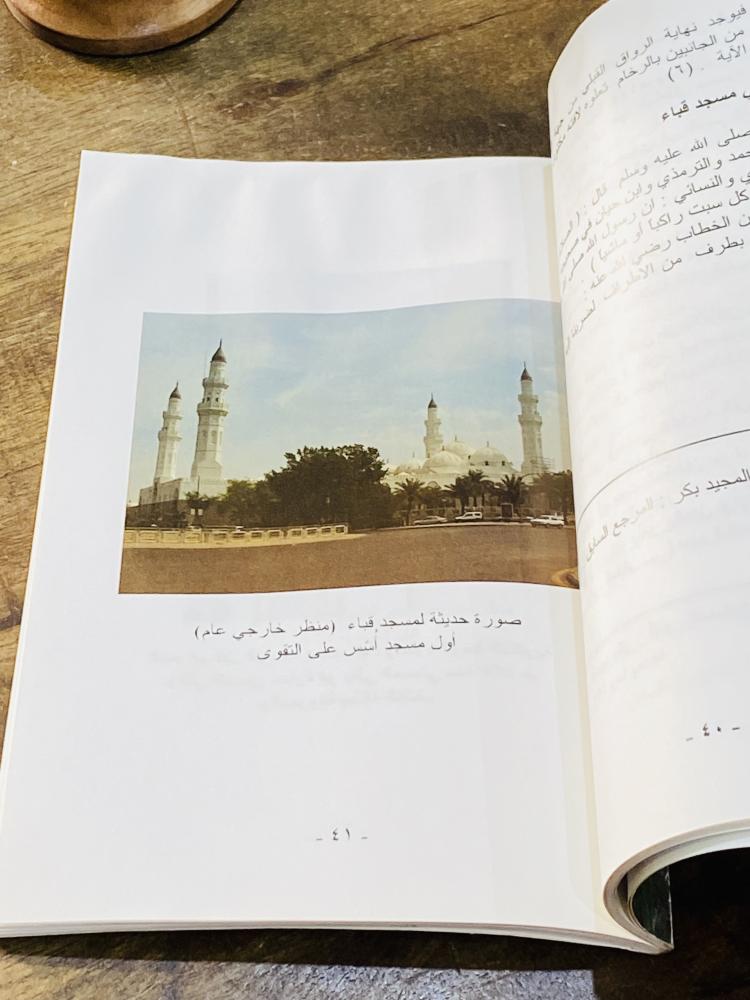 فيوجد نهاية الرواق القبلي من
من الجانبين بالرخام تعلوه
الآية . (٦)
مسجد قباء
صلى الله عليه وسلم قال : (
والترمذي وابن حبان في
والنسائي : أن رسول الله صلى
كل سبت راكبا أو ماشيا ) .
الخطاب رضي الله عنه :
بطرف من الأطراف لضربنا
المجيد بكر : المرجع السابق
- ٤٠ -
صورة حديثة لمسجد قباء (منظر خارجي عام)
أول مسجد أسّس على التقوى
- ٤١ -